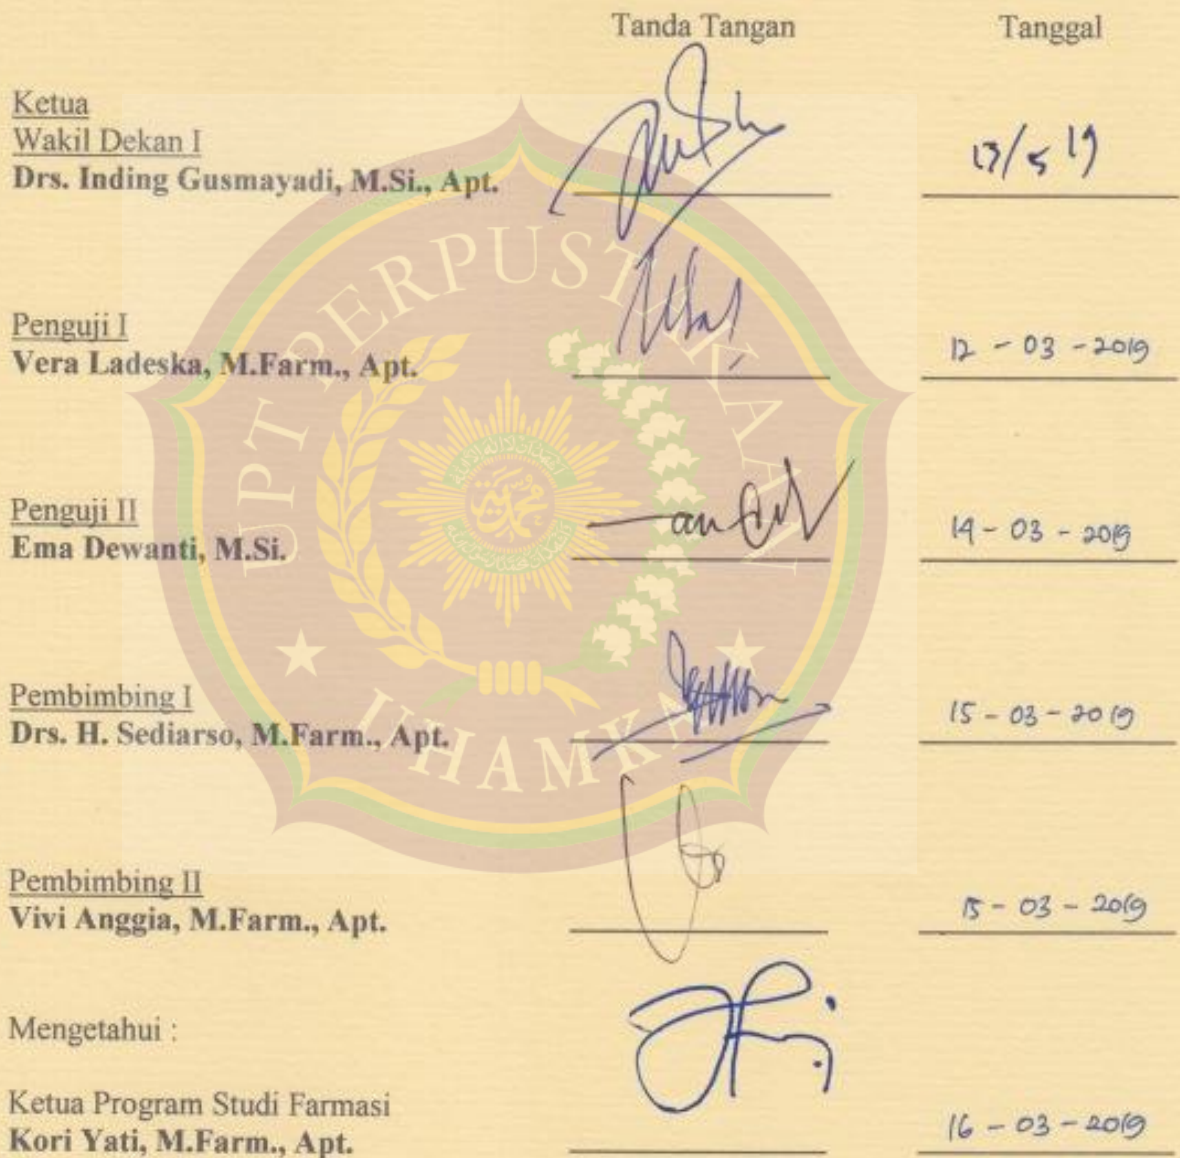 Tanda Tangan Tanggal
Ketua
Wakil Dekan I
Drs. Inding Gusmayadi, M.Si., Apt. 13/5 19
Penguji I
Vera Ladeska, M.Farm., Apt. 12 - 03 - 2019
Penguji II
Ema Dewanti, M.Si. 14 - 03 - 2019
Pembimbing I
Drs. H. Sediarso, M.Farm., Apt. 15 - 03 - 2019
Pembimbing II
Vivi Anggia, M.Farm., Apt. 15 - 03 - 2019
Mengetahui :
Ketua Program Studi Farmasi
Kori Yati, M.Farm., Apt. 16 - 03 - 2019
UPT PERPUSTAKAAN
UHAMKA